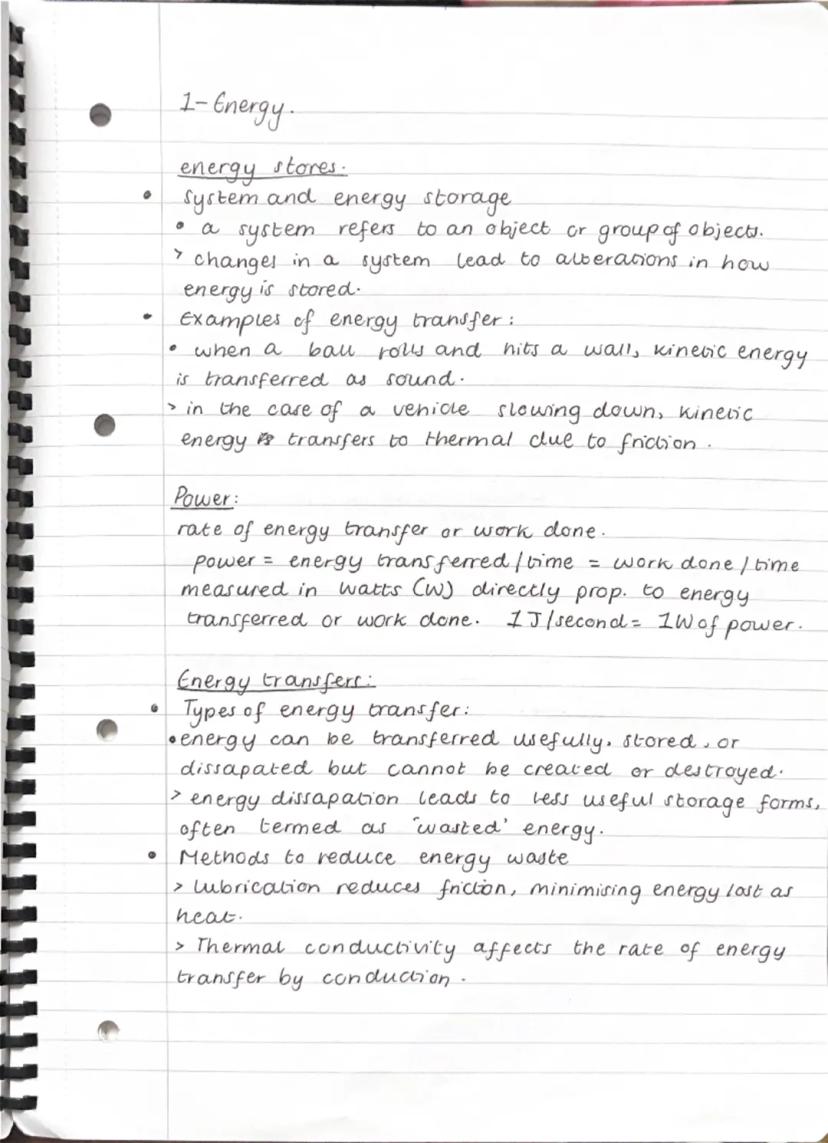 1- Energy.
energy stores.
• System and energy storage
• a system refers to an object or group of objects.
> changes in a system lead to alterations in how
energy is stored.
• Examples of energy transfer:
• when a ball rolls and hits a wall, kinetic energy
is transferred as sound.
> in the case of a vehicle slowing down, kinetic
energy transfers to thermal due to friction.
Power:
rate of energy transfer or work done.
power = energy transferred/time = work done/time
measured in Watts (W) directly prop. to energy
transferred or work done. 1J/second = 1W of power.
Energy transfers:
• Types of energy transfer:
• energy can be transferred usefully, stored, or
dissapated but cannot be created or destroyed.
> energy dissapation leads to less useful storage forms,
often termed as 'wasted' energy.
• Methods to reduce energy waste
> Lubrication reduces friction, minimising energy lost as
heat.
> Thermal conductivity affects the rate of energy
transfer by conduction.